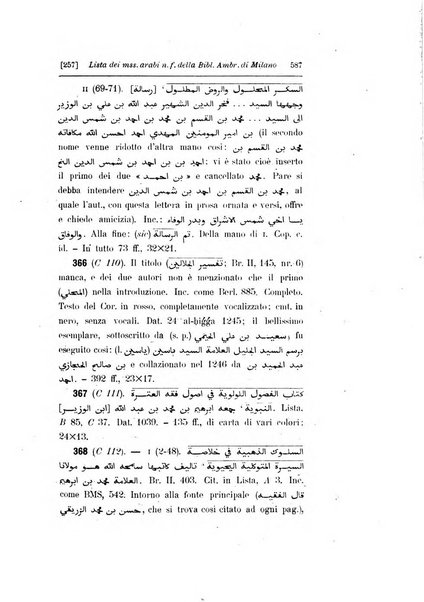 [257] Lista dei mss. arabi n. f. della Bibl. Ambr. di Milano 587
II (69-71). [رسالة] السكر المعلول والروض المطلول'
وجهها السيد ... فخر الدين الشهير عبد الله بن علي بن الوزير
الى السيد ... محمد بن القسم بن محمد بن احمد بن شمس الدين
بن امير المومنين المهدي احمد احسن الله مكافاته (il secondo
nome venne ridotto d'altra mano così: محمد بن القسم بن
محمد بن شمس الدين الخ: vi è stato cioè inserto
il primo dei due « بن احمد » e cancellato محمد. Pare si
debba intendere محمد بن القسم بن احمد بن شمس الدين, al
quale l'aut., con questa lettera in prosa ornata e versi, offre
e chiede amicizia). Inc.: يا اخي شمس الاشراق وبدر الوفاء
والوفاق. Alla fine: (sic) تم الرسالة. Della mano di 1. Cop. c.
id. — In tutto 73 ff., 32×21.
366 (C 110). Il titolo (تفسير الجلالين; Br. II, 145, nr. 6)
manca, e dei due autori non è menzionato che il primo
(المحلي) nella introduzione. Inc. come Berl. 885. Completo.
Testo del Cor. in rosso, completamente vocalizzato; cmt. in
nero, senza vocali. Dat. 24 al-ḥigga 1245; il bellissimo
esemplare, sottoscritto da (s. p.) سعيد بن علي بن صالح, fu
eseguito così: السيد الجليل العلامة السيد ياسين (ياسين) بن
احمد e collazionato nel 1246 da بن صالح المحجازي
احمد. — 392 ff., 23×17.
367 (C 111). كتاب الفصول اللولوية في اصول فقه العترة
النبوية' جمعه ابرهيم بن محمد بن عبد الله [ابن الوزير]. Lista.
B 85, C 37. Dat. 1039. — 135 ff., di carta di vari colori;
24×13.
368 (C 112). — I (2-48). السلوك الذهبية في خلاصة
السيرة المتوكلية اليحيوية' تاليف كاتبها سامحه الله هو مولانا
محمد بن ابرهيم. Br. II. 403. Cit. in Lista A 3. Inc.
come BMS, 542. Intorno alla fonte principale (قال الفقيه
حسن بن محمد الزريقي, che si trova così citato ad ogni pag.),